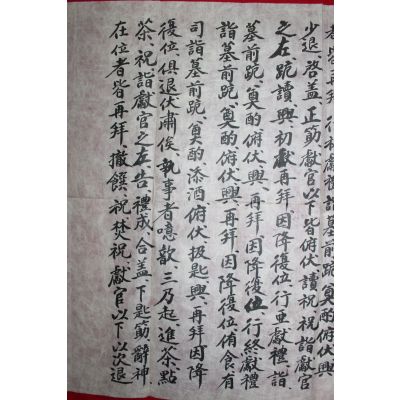 者皆再拜、行初獻禮、詣墓前跪、奠酌俯伏興
少退、啓盖、正筯、獻官以下皆俯伏、讀祝、祝詣獻官
之左、跪讀、興、初獻再拜、因降復位、行亞獻禮、詣
墓前跪、奠酌、俯伏、興、再拜、因降復位、行終獻禮
詣墓前跪、奠酌、俯伏、興、再拜、因降復位、侑食、有
司詣墓前跪、奠酌、添酒、俯伏、扱匙、興、再拜、因降
復位、俱退伏肅俟、執事者噫歆三、乃起、進茶、點
茶、祝、詣獻官之左、告禮成、合盖、下匙筯、辭神
在位者皆再拜、撤饌、祝、焚祝、獻官以下以次退